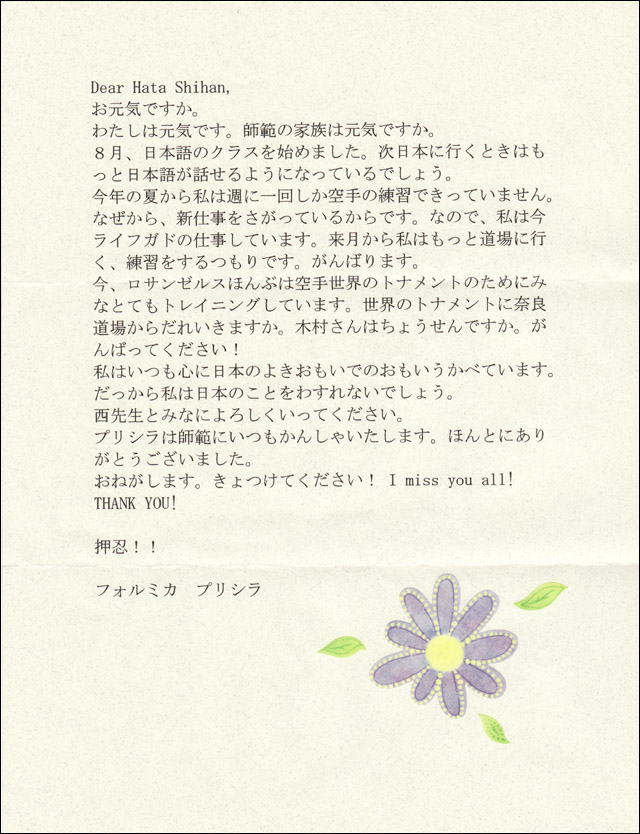 Dear Hata Shihan,
お元気ですか。
わたしは元気です。師範の家族は元気ですか。
８月、日本語のクラスを始めました。次日本に行くときはも
っと日本語が話せるようになっているでしょう。
今年の夏から私は週に一回しか空手の練習できっていません。
なぜから、新仕事をさがっているからです。なので、私は今
ライフガドの仕事しています。来月から私はもっと道場に行
く、練習をするつもりです。がんばります。
今、ロサンゼルスほんぶは空手世界のトナメントのためにみ
なとてもトレイニングしています。世界のトナメントに奈良
道場からだれいきますか。木村さんはちょうせんですか。が
んばってください！
私はいつも心に日本のよきおもいでのおもいうかべています。
だっから私は日本のことをわすれないでしょう。
西先生とみなによろしくいってください。
プリシラは師範にいつもかんしゃいたします。ほんとにあり
がとうございました。
おねがします。きょつけてください！ I miss you all!
THANK YOU!
押忍！！
フォルミカ　プリシラ